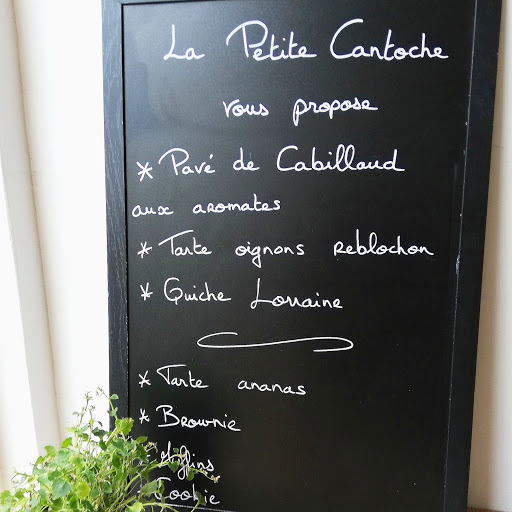 La Petite Cantoche
vous propose
* Pavé de Cabillaud
aux aromates
* Tarte oignons Reblochon
* Quiche Lorraine
* Tarte ananas
* Brownie
* Muffins
Cookie